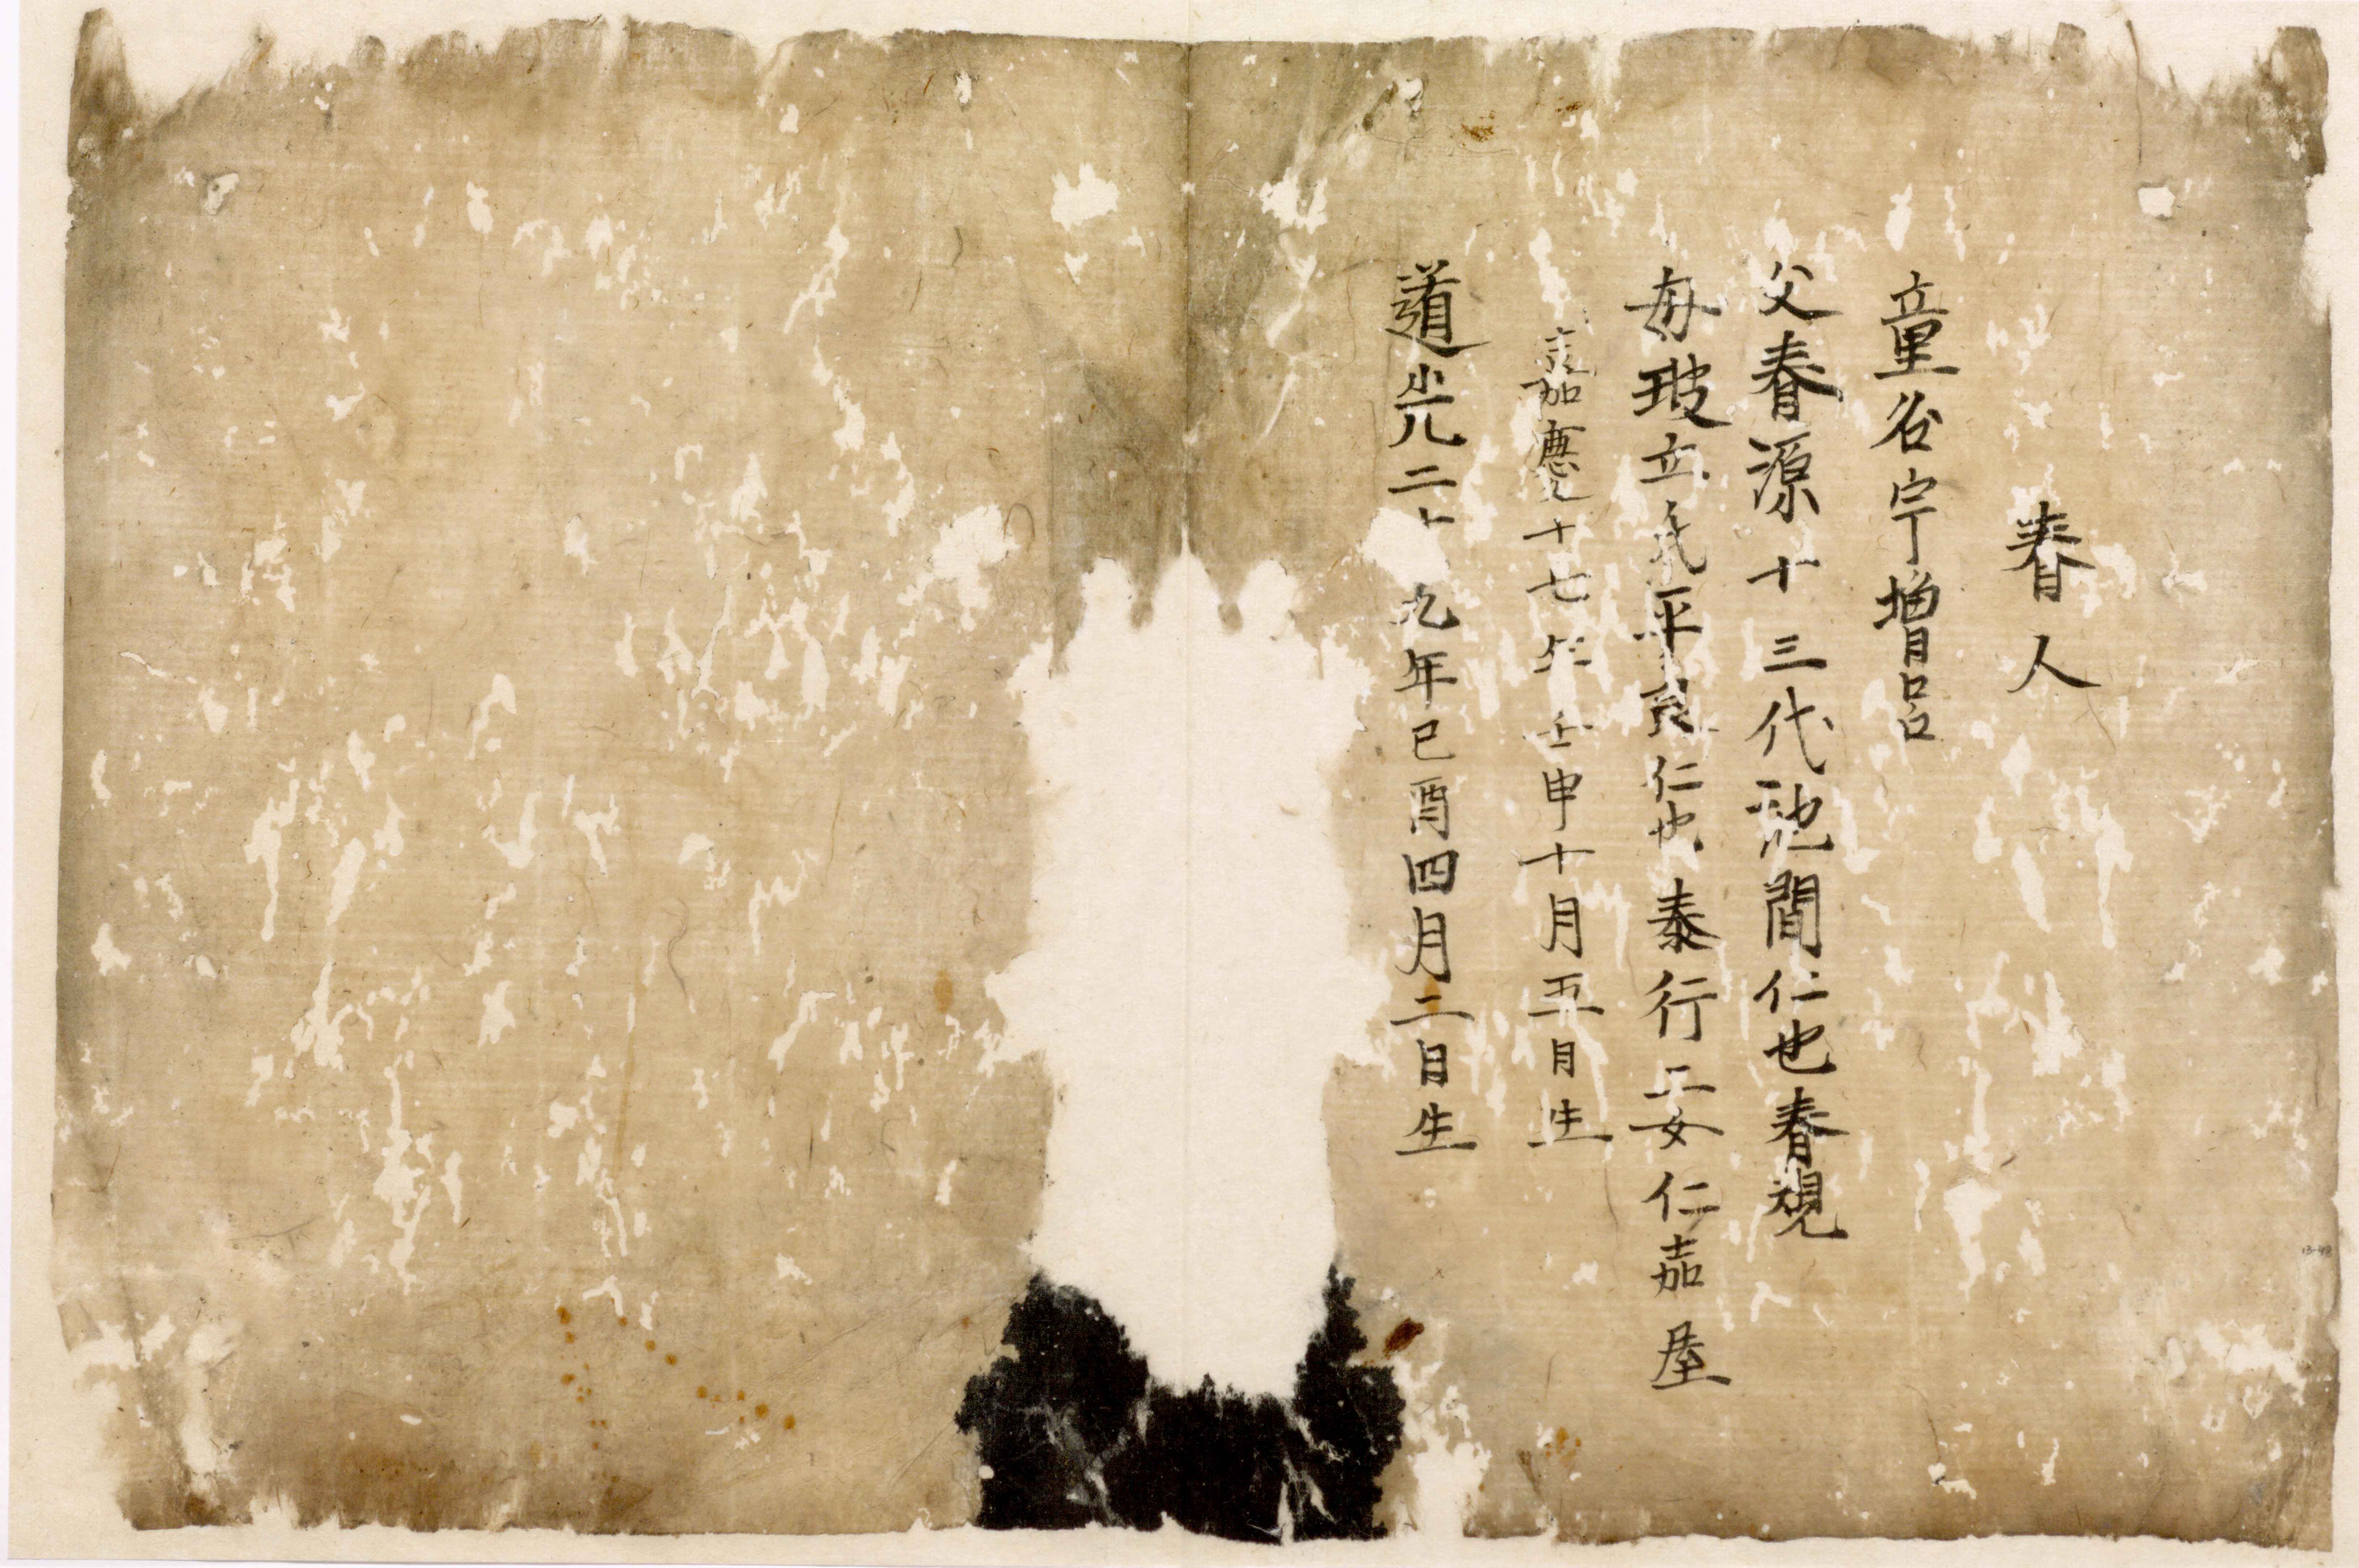 春人
童名宇增呂
父春源十三代池間仁也春視
毋玻立氏平良仁也泰行女仁嘉屋
嘉慶十七年壬申十月五日生
道光二十九年已酉四月二日生
13-48